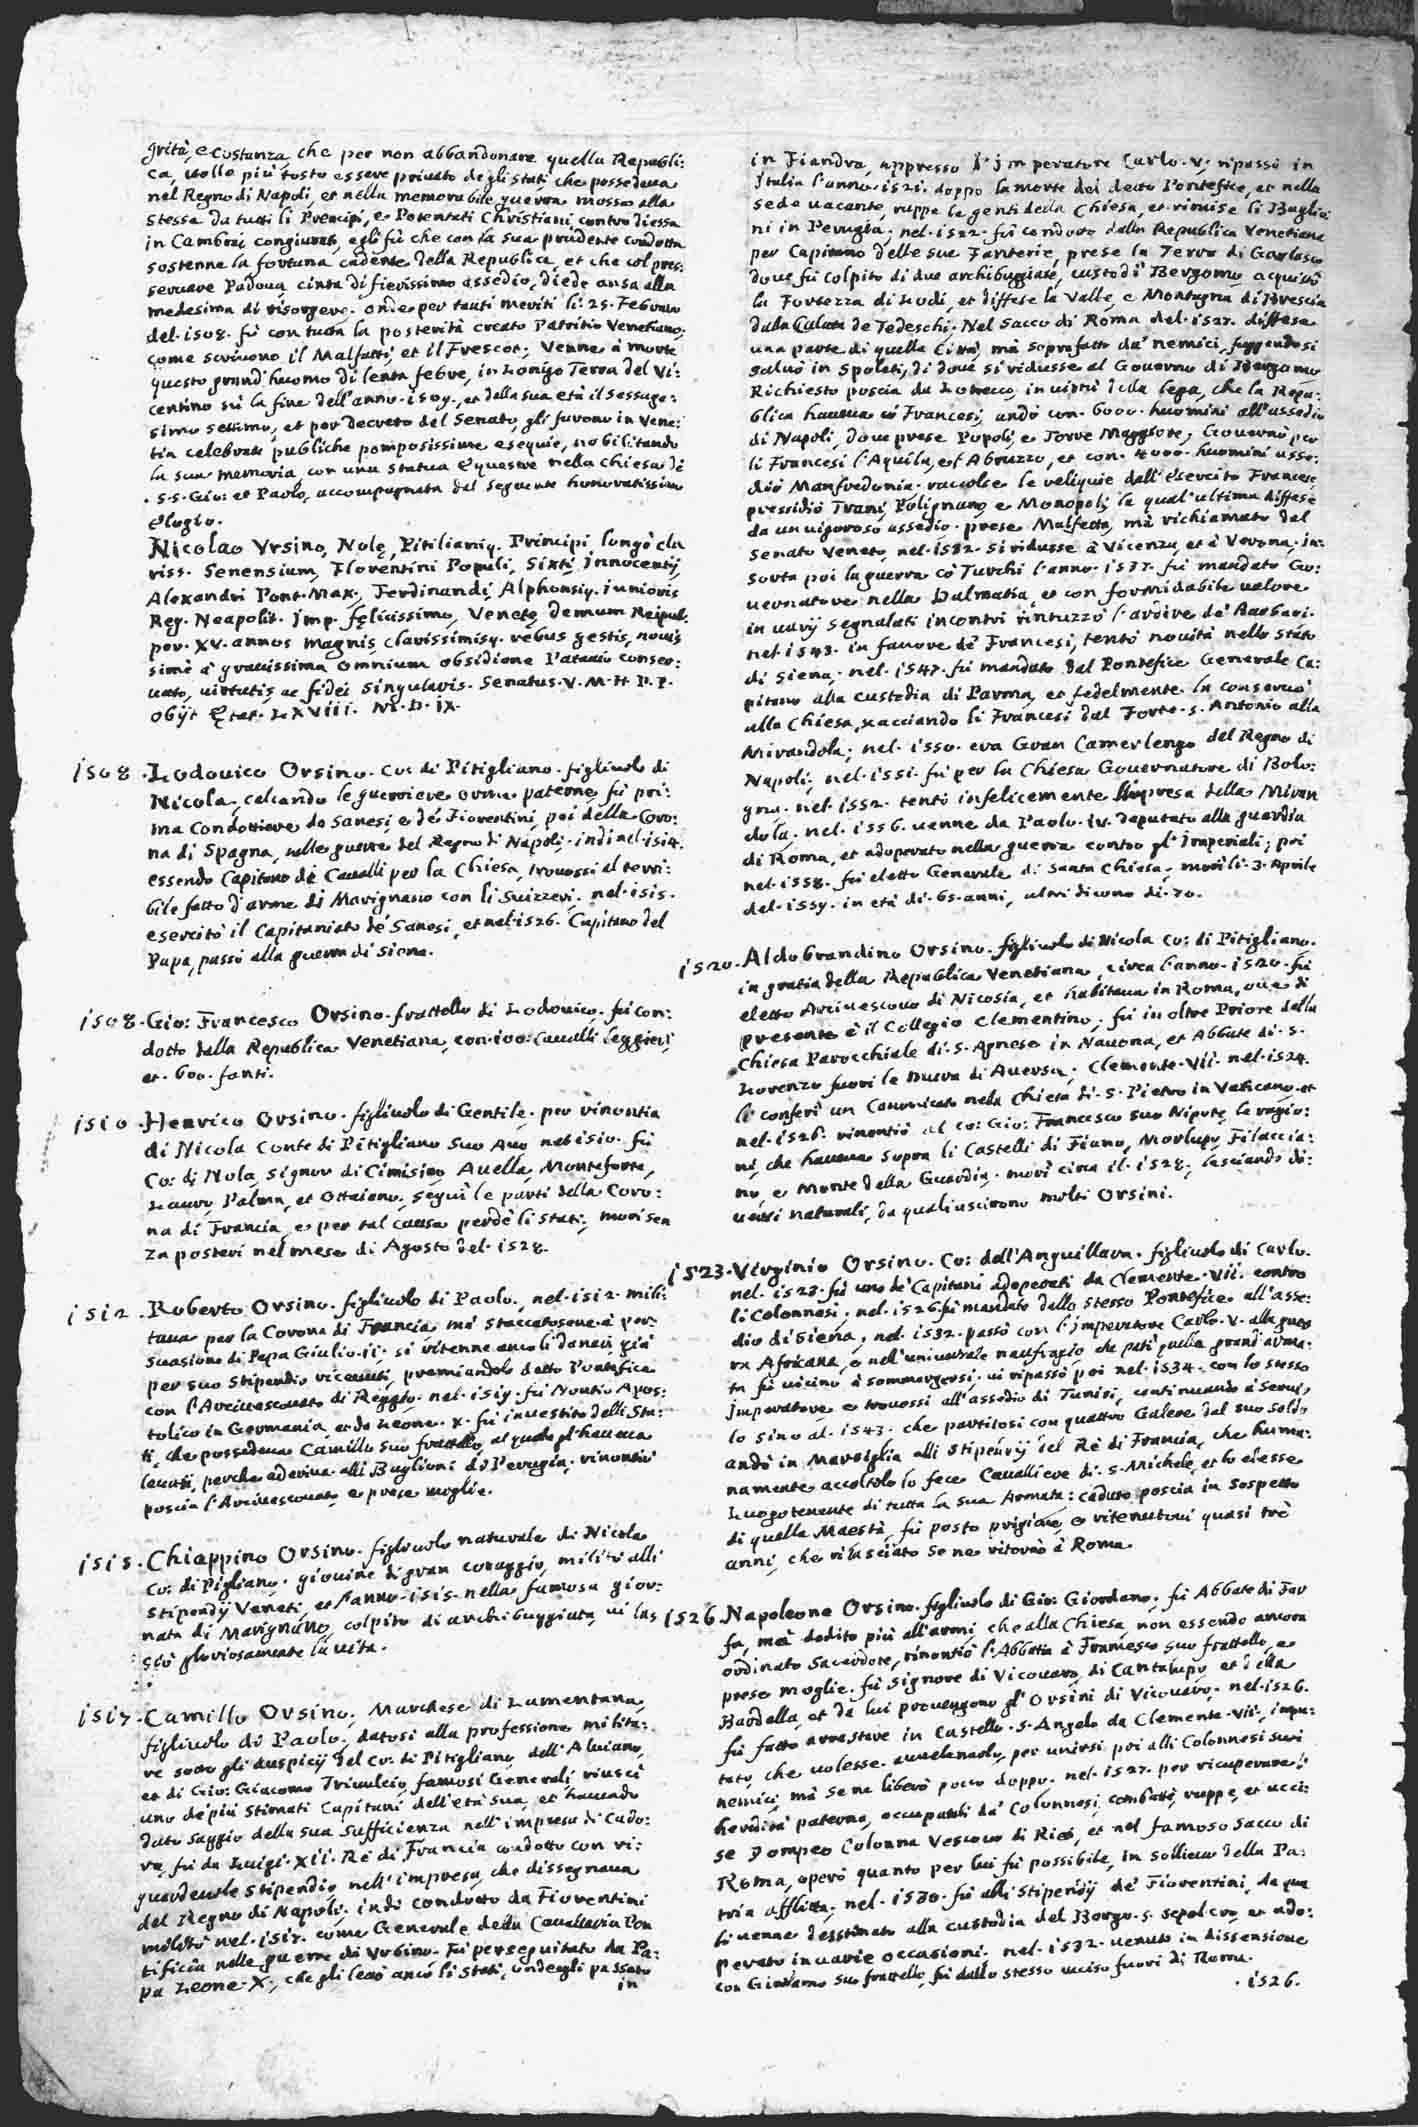 grità, e costanza, che per non abbandonare quella Republi:
ca, uolle più tosto essere priuato degli stati, che possedeua
nel Regno di Napoli, et nella memorabile guerra mossa alla
stessa da tutti li Prencipi, e Potentati Christiani, contro di essa
in Cambrai congiurati, egli fù che con la sua prudente condotta
sostenne la fortuna cadente della Republica, et che col pres:
seruare Padoua, cinta di fierissimo assedio, diede ansa alla
medesima di risorgere. onde per tanti meriti li. 25. Febraro
del. 1508. fù con tutta la posterità creato Patritio Venetiano,
come scriuono il Malfatti, et il Frescot; Venne à morte
questo grand'huomo di lenta febre, in Lonigo Terra del Vi:
centino sù la fine dell'anno. 1509., et della sua età il sessage:
simo settimo, et per decreto del Senato, gli furono in Vene:
tia celebrate publiche pomposissime esequie, nobilitando
la sua memoria, con una statua Equestre nella chiesa di
. S. S. Gio: et Paolo, accompagnata dal seguente honoratissimo
elogio.
Nicolao Vrsino, Nolę, Pitilianiq. Principi, longè cla
riss. Senensium, Florentini Populi, Sixti, Innocentij,
Alexandri Pont. Max., Ferdinandi, Alphonsiq. iunioris
Reg. Neapolit. Imp. fęlicissimo, Venetę demum Reipub.
per. XV. annos magnis, clarissimisq. rebus gestis, nouis
simè à grauissima omnium obsidione Patauio conser:
uato, uirtutis, ac fidei singularis. Senatus. V. M. H. P. P.
Obijt ętat. LXVIII. M. D. IX.
1508. Lodouico Orsino. Co: di Pitigliano. figliuolo di
Nicola, calcando le guerriere orme paterne, fù pri:
ma Condottiere de Sanesi, e de' Fiorentini, poi della Coro:
na di Spagna, nelle guerre del Regno di Napoli, indi nel. 1514.
essendo Capitano di Caualli per la Chiesa, trouossi al terri:
bile fatto d'arme di Marignano con li Suizzeri. nel. 1515.
esercitò il Capitaniato de' Sanesi, et nel. 1526. Capitano del
Papa, passò alla guerra di Siena.
1508. Gio: Francesco Orsino. frattello di Lodouico, fù con:
dotto dalla Republica Venetiana, con. 100: Caualli leggieri,
et. 600. fanti.
1510. Henrico Orsino. figliuolo di Gentile. per rinontia
di Nicola Conte di Pitigliano suo Auo, nel. 1510. fù
Co: di Nola, Signor di Cimisino, Auella, Monteforte,
Lauro, Palma, et Ottaiano, seguì le parti della Coro:
na di Francia, e per tal causa perdè li stati, morì sen
za posteri nel mese di Agosto del. 1528.
1512. Roberto Orsino. figliuolo di Paolo, nel. 1512. mili:
taua per la Corona di Francia, mà staccatosene à per:
suasione di Papa Giulio. II. si ritenne anco li danari, già
per suo stipendio riceuuti, premiandolo detto Pontefice
con l'Arciuescouato di Reggio. nel. 1519. fù Nontio Apos:
tolico in Germania, et da Leone. X. fù inuestito delli sta:
ti, che possedeua Camillo suo frattello, al quale gl'haueua
leuati, perche aderiua alli Baglioni di Perugia. rinontiò
poscia l'Arciuescouato, e prese moglie.
1515. Chiappino Orsino. figliuolo naturale di Nicola
Co: di Pigliano. giouine di gran coraggio, militò alli
stipendij Veneti, et l'anno. 1515. nella famosa gior:
nata di Marignano, colpito di archibuggiata, ui las
ciò gloriosamente la uita.
1517. Camillo Orsino, Marchese di Lamentana,
figliuolo di Paolo, datosi alla professione milita:
re sotto gli auspicij del Co: di Pitigliano, dell'Aluiano,
et di Gio: Giacomo Triuulcio, famosi Generali, riuscì
uno de' più stimati Capitani dell'età sua, et hauendo
dato saggio della sua sufficienza nell'impresa di Cado:
re, fù da Luigi. XII. Rè di Francia condotto con ri:
guardeuole stipendio, nell'impresa, che dissegnaua
del Regno di Napoli. indi condotto da Fiorentini
militò nel. 1517. come Generale della Caualleria Pon
tificia nelle guerre di Vrbino. Fù perseguitato da Pa:
pa Leone. X., che gli leuò anco li stati, ond'egli passato
in
in Fiandra, appresso l'Imperatore Carlo. V., ripassò in
Italia l'anno. 1521. doppo la morte del detto Pontefice, et nella
sede uacante, ruppe le genti della Chiesa, et rimise li Baglio:
ni in Perugia. nel. 1522. fù condotto dalla Republica Venetiana
per Capitano delle sue Fanterie, prese la Terra di Garlasco
doue fù colpito di due archibuggiate, custodì Bergomo, acquistò
la Fortezza di Lodi, et diffese la Valle, e Montagna di Brescia
dalla Calata de Tedeschi. Nel Sacco di Roma del. 1527. diffese
una parte di quella Città, mà soprafatto da' nemici, fuggendo si
saluò in Spoleti, di doue si ridusse al Gouerno di Bergamo
Richiesto poscia da Lotrecco, in uirtù della lega, che la Repu:
blica haueua co' Francesi, andò con. 6000. huomini all'assedio
di Napoli, doue prese Popoli, e Torre Maggiore, Gouernò per
li Francesi l'Aquila, et l'Abruzzo, et con. 4000. huomini asse:
diò Manfredonia. raccolse le reliquie dell'esercito Francese,
pressidiò Trani, Polignano, e Monopoli, la qual'ultima diffese
da un uigoroso assedio. prese Malfetta, mà richiamato dal
Senato Veneto, nel. 1532. si ridusse à Vicenza, et à Verona. in:
sorta poi la guerra co' Turchi l'anno. 1537. fù mandato Go:
uernatore nella Dalmatia, et con formidabile ualore
in uarij segnalati incontri rintuzzò l'ardire de' Barbari.
nel. 1543. in fauore de' Francesi, tentò nouità nello stato
di Siena. nel. 1547. fù mandato dal Pontefice Generale Ca:
pitano alla custodia di Parma, et fedelmente la conseruò
alla Chiesa, scacciando li Francesi dal Forte. S. Antonio alla
Mirandola; nel. 1550. era Gran Camerlengo del Regno di
Napoli; nel. 1551. fù per la Chiesa Gouernatore di Bolo:
gna. nel. 1552. tentò infelicemente l'impresa della Miran
dola. nel. 1556. uenne da Paolo. IV. deputato alla guardia
di Roma, et adoperato nella guerra contro gl'Imperiali; poi
nel. 1558. fù eletto Generale di Santa Chiesa, morì li. 3. Aprile
del. 1559. in età di. 65. anni, altri dicono di. 70.
1520. Aldobrandino Orsino. figliuolo di Nicola Co: di Pitigliano.
in gratia della Republica Venetiana, circa l'anno. 1520. fù
eletto Arciuescouo di Nicosia, et habitaua in Roma, oue di
presente è il Collegio Clementino, fù in oltre Priore della
Chiesa Parocchiale di. S. Agnese in Nauona, et Abbate di. S.
Lorenzo fuori le mura di Auersa; Clemente. VII. nel. 1524.
li conferì un Canonicato nella Chiesa di. S. Pietro in Vaticano, et
nel. 1526. rinontiò al Co: Gio: Francesco suo Nipote, le ragio:
ni, che haueua sopra li Castelli di Fiano, Morlupo, Filaccia:
no, e Monte della Guardia. morì circa il. 1528. lasciando di:
uersi naturali, da quali uscirono molti Orsini.
1523. Virginio Orsino. Co: dell'Anguillara. figliuolo di Carlo.
nel. 1523. fù uno de' Capitani adoperati da Clemente. VII. contro
li Colonnesi, nel. 1526. fù mandato dallo stesso Pontefice all'asse:
dio di Siena, nel. 1532. passò con l'Imperatore Carlo. V. alla guer
ra Africana, e nell'uniuersale naufragio che patì quella grand'arma:
ta fù uicino à sommergersi, ui ripassò poi nel. 1534. con lo stesso
Imperatore, e trouossi all'assedio di Tunisi, continuando à seruir
lo sino al. 1543. che partitosi con quattro Galere dal suo soldo
andò in Marsiglia alli stipendij del Rè di Francia, che huma:
namente accoltolo lo fece Caualliere di. S. Michele, et lo elesse
Luogotenente di tutta la sua Armata: caduto poscia in sospetto
di quella Maestà, fù posto prigione, e ritenutoui quasi trè
anni, che rilasciato se ne ritornò à Roma.
1526. Napoleone Orsino. figliuolo di Gio: Giordano, fù Abbate di Far
fa, mà dedito più all'armi, che alla Chiesa, non essendo ancora
ordinato Sacerdote, rinontiò l'Abbatia à Francesco suo frattello, e
prese moglie. fù Signore di Vicouaro, di Cantalupo, et della
Bardella, et da lui prouengono gl'Orsini di Vicouaro. nel. 1526.
fù fatto arrestare in Castello. S. Angelo da Clemente. VII., impu:
tato, che uolesse auuelenarlo, per unirsi poi alli Colonnesi suoi
nemici, mà se ne liberò poco doppo. nel. 1527. per ricuperare l'
heredità paterna, occupatali da' Colonnesi, combattè, ruppe, et ucci:
se Pompeo Colonna Vescouo di Rieti, et nel famoso Sacco di
Roma, operò quanto per lui fù possibile, in sollieuo della Pa:
tria afflitta. nel. 1530. fù alli stipendij de' Fiorentini, da qua
li uenne desstinato alla custodia del Borgo. S. Sepolcro, et ado:
perato in uarie occasioni. nel. 1532. uenuto in dissensione
con Girolamo suo frattello, fù dallo stesso ucciso fuori di Roma.
. 1526.